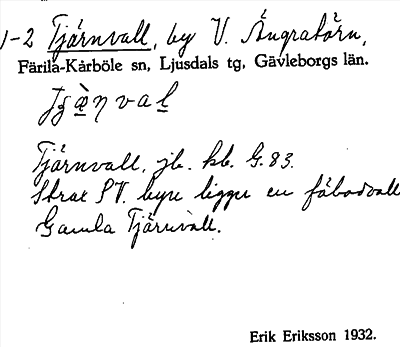 1-2 Tjärnvall, by V. Ängratörn,
Färila-Kårböle sn, Ljusdals tg, Gävleborgs län.
Tjärnvall, jb. kb. G. 83.
Strax SV. byn ligger en fäbodvall
Gamla Tjärnvall.
Erik Eriksson 1932.